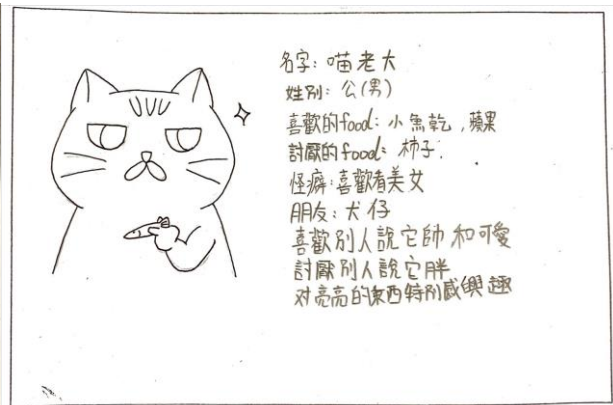 名字：喵老大
姓別：公(男)
喜歡的food：小魚乾，蘋果
討厭的food：柿子．
怪癖：喜歡看美女
朋友：犬仔
喜歡別人說它帥和可愛
討厭別人說它胖
对亮亮的東西特別感興趣